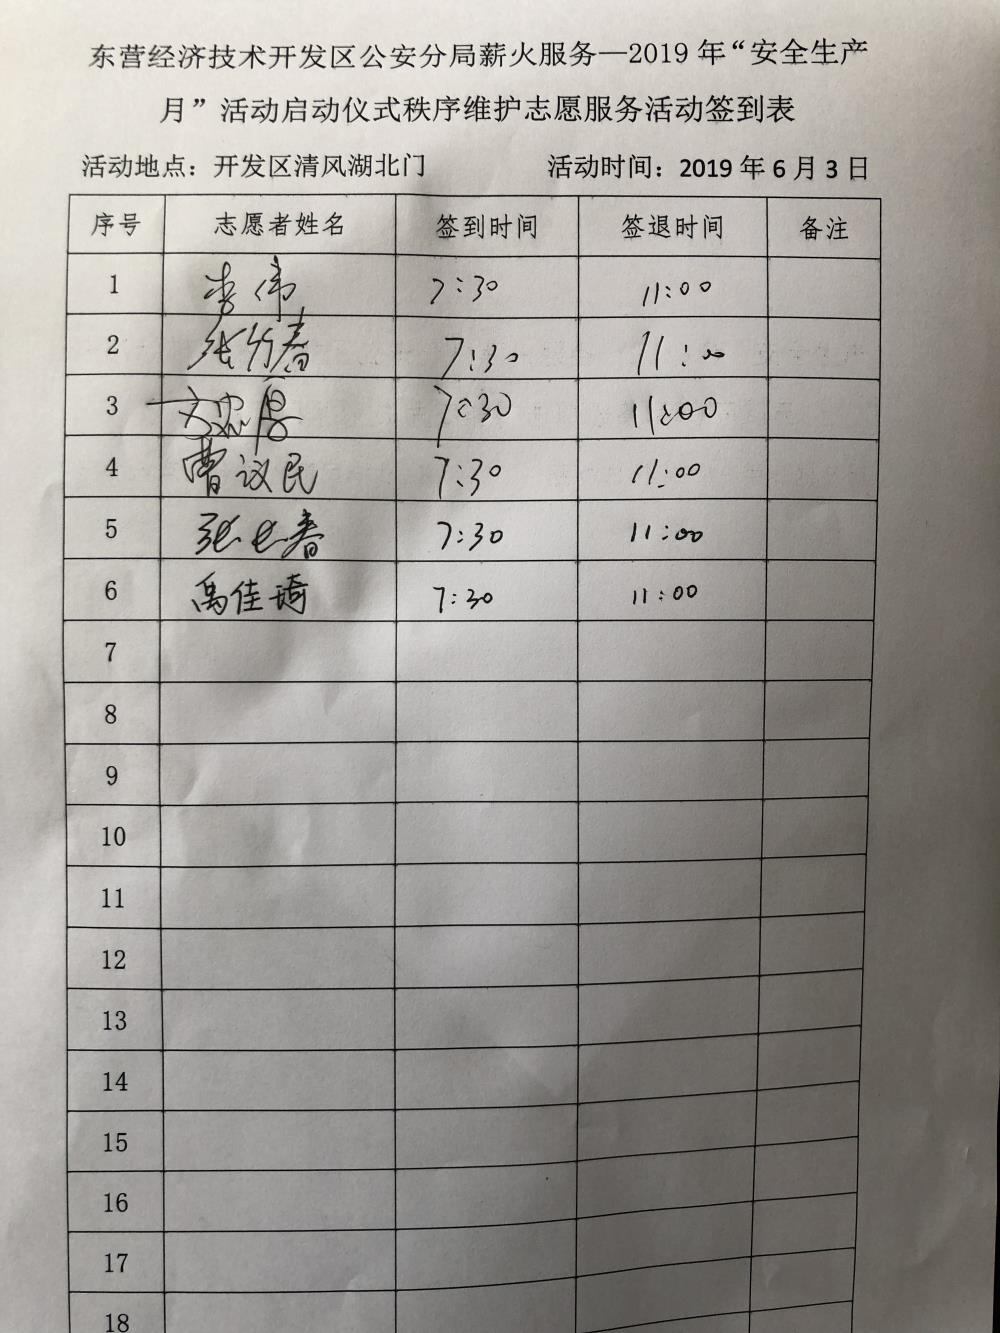 东营经济技术开发区公安分局薪火服务—2019 年“安全生产
月”活动启动仪式秩序维护志愿服务活动签到表
活动地点：开发区清风湖北门 活动时间：2019 年 6 月 3 日
序号 志愿者姓名 签到时间 签退时间 备注
1 李伟 7:30 11:00
2 张竹春 7:30 11:00
3 7:30 11:00
4 曹议民 7:30 11:00
5 张长春 7:30 11:00
6 禹佳琦 7:30 11:00
7
8
9
10
11
12
13
14
15
16
17
18